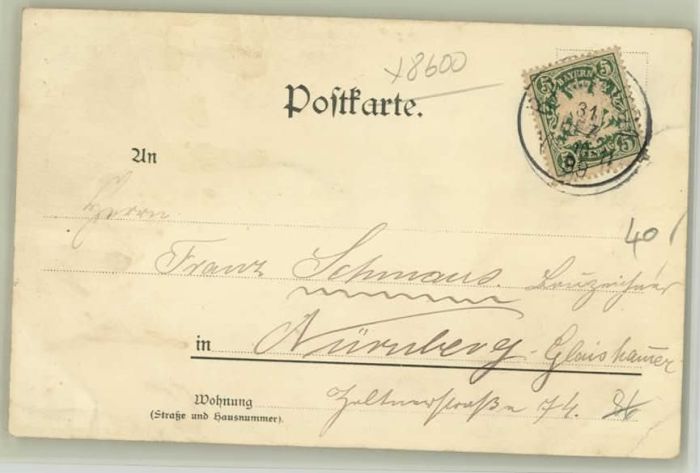 x8600
Postkarte.
BAYERN
5 5
5 5
31
DEZ
An
Herrn
40
Franz Schmaus. Bauzeichner
in Nürnberg-Glaishammer
Wohnung Zeltnerstraße 74.
(Straße und Hausnummer).